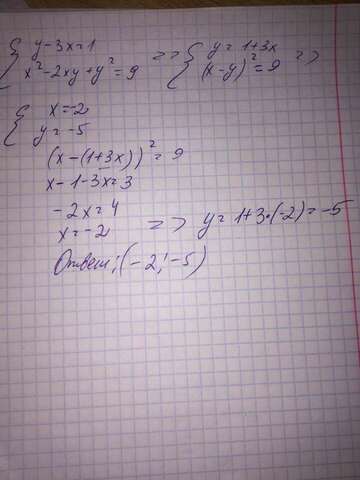 { y-3x=1 => { y=1+3x =>
x²-2xy+y²=9 (x-y)²=9
{ x=-2
y=-5
(x-(1+3x))²=9
x-1-3x=3
-2x=4
x=-2 => y=1+3·(-2)=-5
Ответ: (-2;-5)